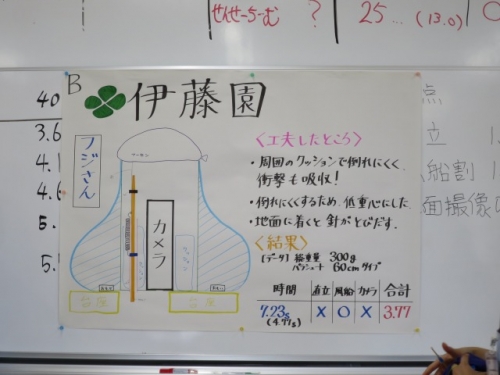 せんせーらーむ ? 25...(13.0)
B
伊藤園
フジさん
カメラ
<工夫したところ>
・周囲のクッションで倒れにくく、
衝撃も吸収!
・倒れにくくするため、低重心にした。
・地面に着くと針がとびだす。
<結果>
[データ] 総重量 300g
パラシュート 60cmタイプ
時間 直立 風船 カメラ 合計
7.23s × ○ × 3.77
(4.77s)
40
3.6
4.1
4.6
5.
5.
点
立 1.
船割 1
面撮像